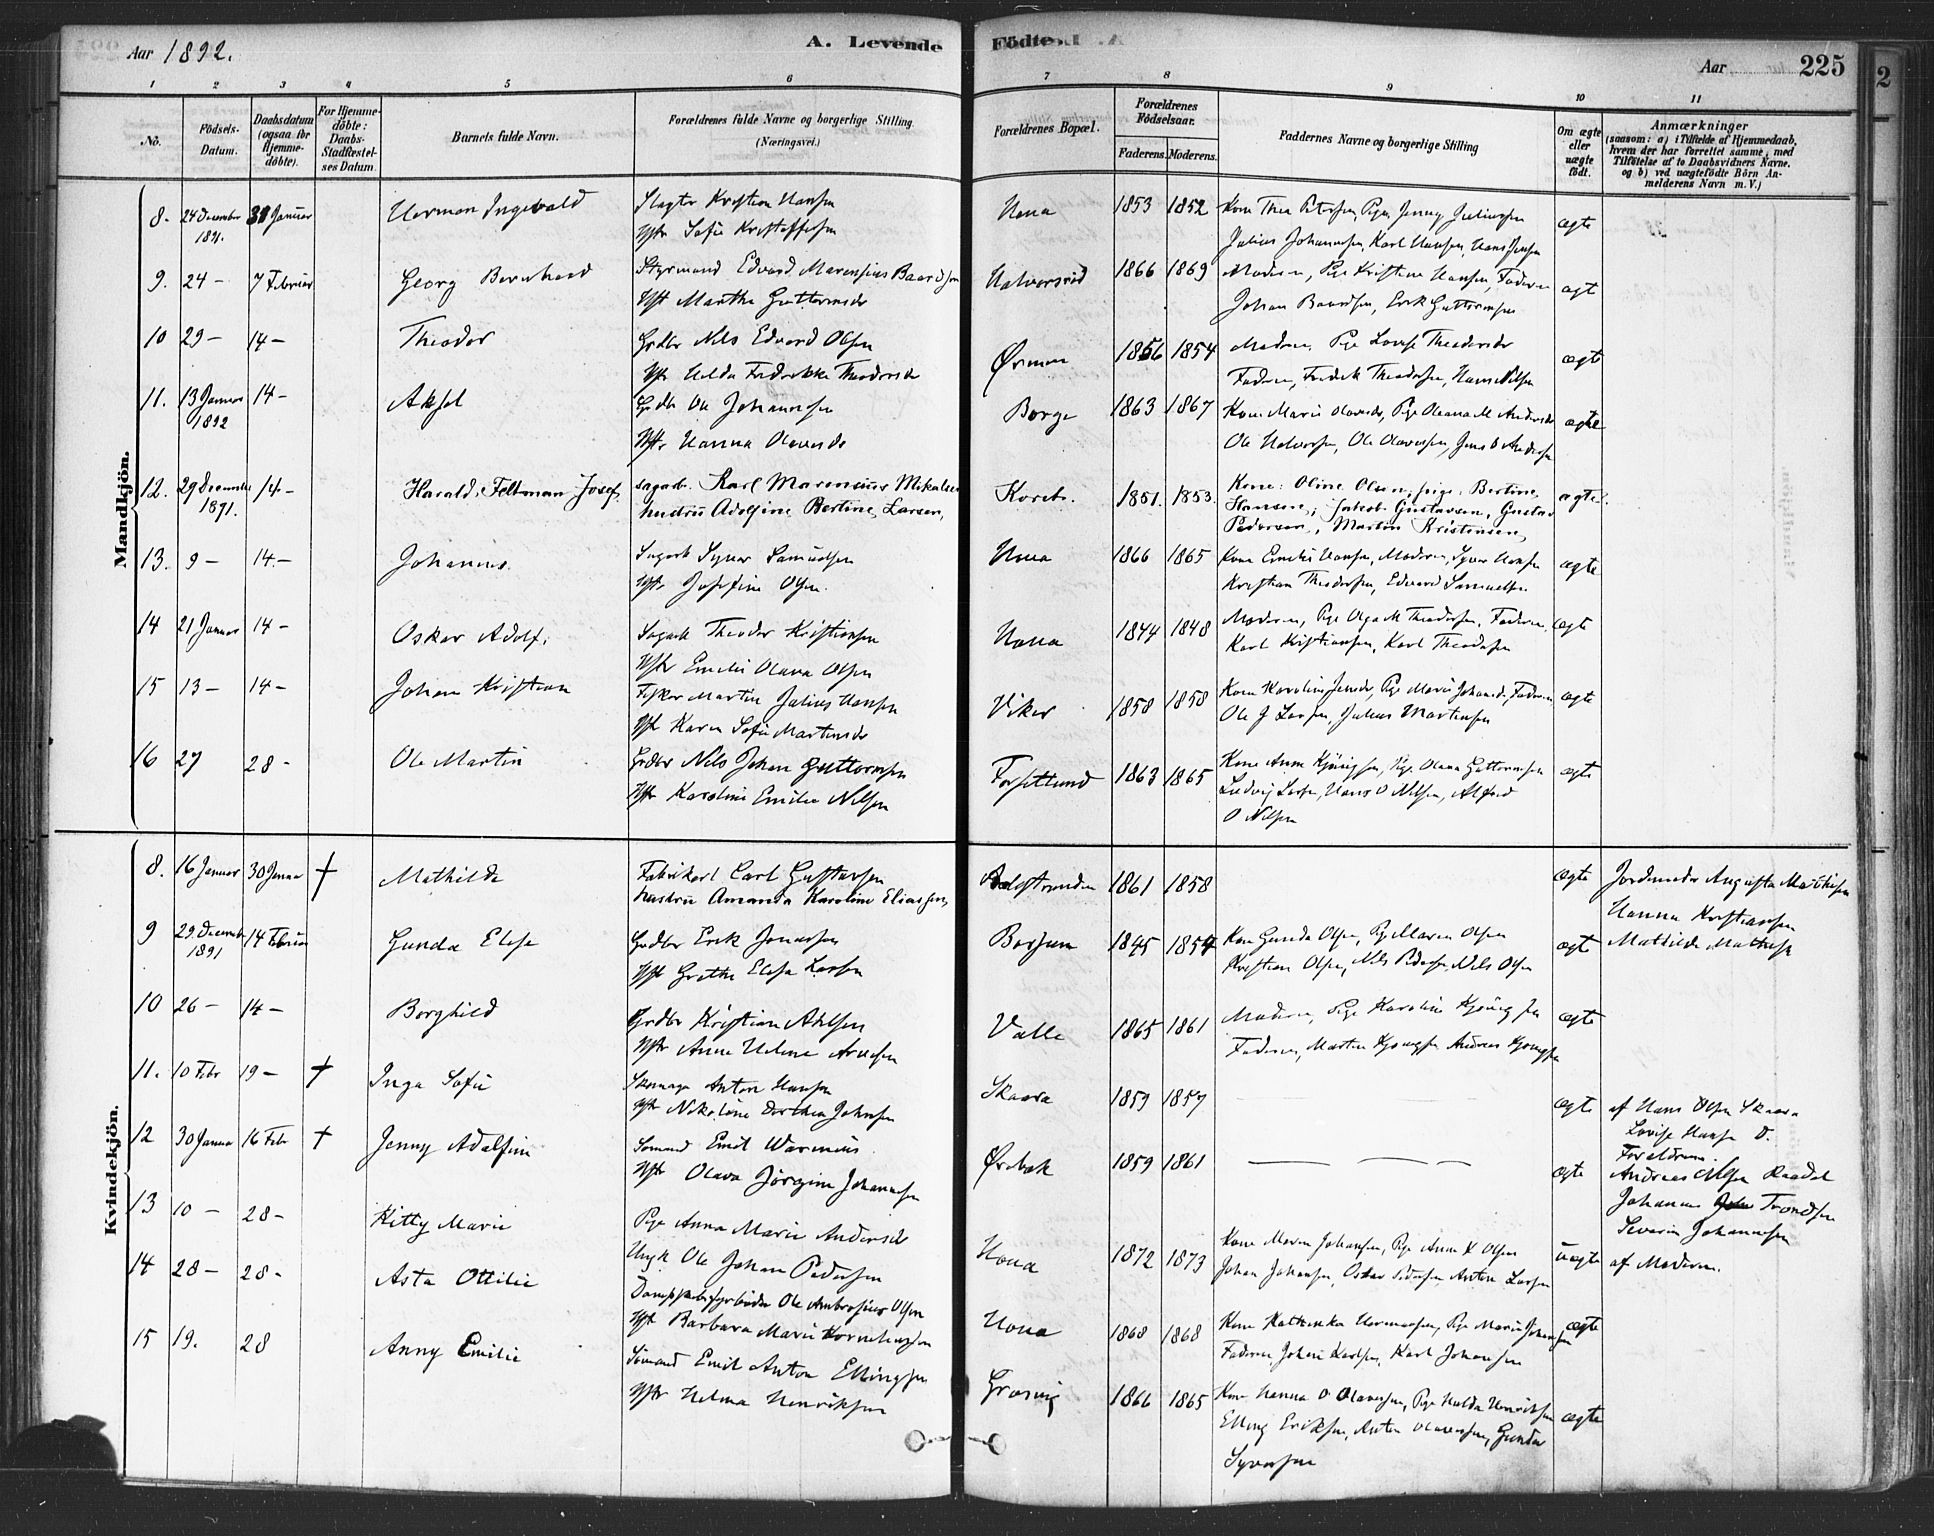 Aar 1892.
A. Levende
Födte.
Aar
225
1 2 3 4 5 6 7 8 9 10 11
No.
Födsels-Datum.
Daabsdatum (ogsaa for Hjemmedöbte).
For Hjemmedöbte: Daabs-Stadfæstelses Datum.
Barnets fulde Navn.
Forældrenes fulde Navne og borgerlige Stilling (Næringsvei.)
Forældrenes Bopæl.
Forældrenes Födselsaar.
Faderens. Moderens.
Faddernes Navne og borgerlige Stilling
Om ægte eller uægte födt.
Anmærkninger
(saasom: a) i Tilfælde af Hjemmedaab, hvem der har forrettet samme, med Tilföielse af to Daabsvidners Navne. og b) ved uægtefödte Börn Anmelderens Navn m. V.)
Mandkjön.
8. 24 December 1891. 31 Januar Herman Ingevald Slagter Kristian Hansen
Hstr Sofie Kristoffersen
Hona 1853 1852 Kone Thea Petersen, Pige Jenny Juliussen
Julius Johannesen, Karl Hansen, Hans Jensen
ægte
9. 24 — 7 Februar Georg Bernhard Styrmand Edvard Marensius Baardsen
Hst Marthe Guttormsdr
Halvorsrød 1866 1869 Moderen, Pige Kristine Hansen, Faderen
Johan Baardsen, Erik Guttormsen
ægt
10 29 — 14 — Theodor Grdbr Nils Edvard Olsen
Hstr Helda Fredrikke Theodorsdr
Ørmen 1856 1854 Moderen, Pige Lovise Theodorsdr
Faderen, Fredrik Theodorsen, Hans Nilsen
ægte
11. 13 Januar 1892 14 — Aksel Grdbr Ole Johannesen
Hstr Hanna Olavesdr
Borge 1863 1867 Kone Marie Olavesdr, Pige Oleana M Andersdr
Ole Halvorsen, Ole Olavessen, Jens O Andersen
ægte
12. 29 December 1891. 14 — Harald Feltman Josef, sagarb. Karl Marensius Mikalsen
hustru Adolfine Bertine Larsen,
1851. 1853. Kone: Oline Olsen, pige: Bertine
Hansen, Jakob Gustavsen, Gustav
Pedersen, Martin Kristensen,
ægte
13. 9 — 14. — Johannes. Sagarb Syver Samuelsen
Hstr Josefine Olsen.
Hona 1866 1865 Kone Emilie Hansen, Moderen, Syver Hansen
Kristian Theodorsen, Edvard Samuelsen
ægte
14 21 Januar 14 — Oskar Adolf. Sagarb Theodor Kristiansen
Hstr Emilie Olava Olsen
Hona 1844 1848 Moderen, Pige Olga M Theodorsen, Faderen,
Karl Kristiansen, Karl Theodorsen
ægte
15 13 — 14 — Johan Kristian Fisker Martin Julius Hansen
Hst Karen Sofie Martinsdr
Viker 1858 1858 Kone Karoline Jensdr, Pige Marie Johansdr, Faderen
Ole J Larsen, Julius Martinsen
ægte
16 27 28 — Ole Martin Grdbr Nils Johan Guttormsen
Hstr Karoline Emilie Nilsen
Forsetlund 1863 1865 Kone Anne Kjønigsen, Pige Olava Guttormsen
Ludvig Larsen, Hans O Nilsen, Alfred
O Nilsen
ægte
Kvindekjön.
8. 16 Januar 30 Janua † Mathilde Fabrikarb Carl Gustavsen
hustru Amanda Karoline Eliassen,
1861 1858 ægte Jordemoder Augusta Mathisen
Hanna Kristiansen
Mathilde Mathisen
9 29 December 1891 14 Februar Gunda Elise Grdbr Erik Jonassen
Hst Grethe Elisa Larsen
Borgen 1845 1854 Kone Gunda Olsen, Pige Maren Olsen
Kristian Olsen, Nils Pedersen, Nils Olsen
ægt
10 26 — 14 — Borghild Grdbr Kristian Adolfsen
Hstr Anne Helene Arnesen
Valle 1865 1861 Moderen, Pige Karoline Kjønigsen
Faderen, Martin Kjønigsen Andreas Kjønigsen
ægte
11. 10 Febr 19 — † Inga Sofie Skomager Anton Hansen
Hstr Nikoline Dorthea Johnsen
Skaara 1859 1857 ægte af Hans Olsen Skaara
Lovise Hansen D.
Forældrene
12 30 Janua 16 Febr † Jenny Adolfine Sømand Emil Warmus
Hstr Olava Jørgine Johannesen
Ørebek 1859 1861 ægte Andreas Nilsen Raadal
Johannes Trondsen
Severin Johannesen
13 10 — 28 — Kitty Marie Pige Anna Marie Andersdr
Ungk Ole Johan Pedersen
Hona 1872 1873 Kone Maren Johansen, Pige Anne K Olsen
Johan Johansen, Oskar Pedersen Anton Larsen
uægte af Moderen.
14 28 — 28 — Asta Ottilie Dampskibsfyrbøder Ole Ambrosius Olsen
Hst Barbara Marie Korneliussen
Hona 1868 1868 Kone Kathinka Hermansen, Pige Marie Johansen
Faderen, Johan Karlsen, Karl Johansen
ægte
15 19. 28 Anny Emilie Sømand Emil Anton Ellingsen
Hstr Helma Henriksen
Gresvig 1866 1865 Kone Hanna O Olavessen, Pige Hulda Henriksen
Elling Eriksen, Anton Olavessen, Gunder
Syversen
ægte